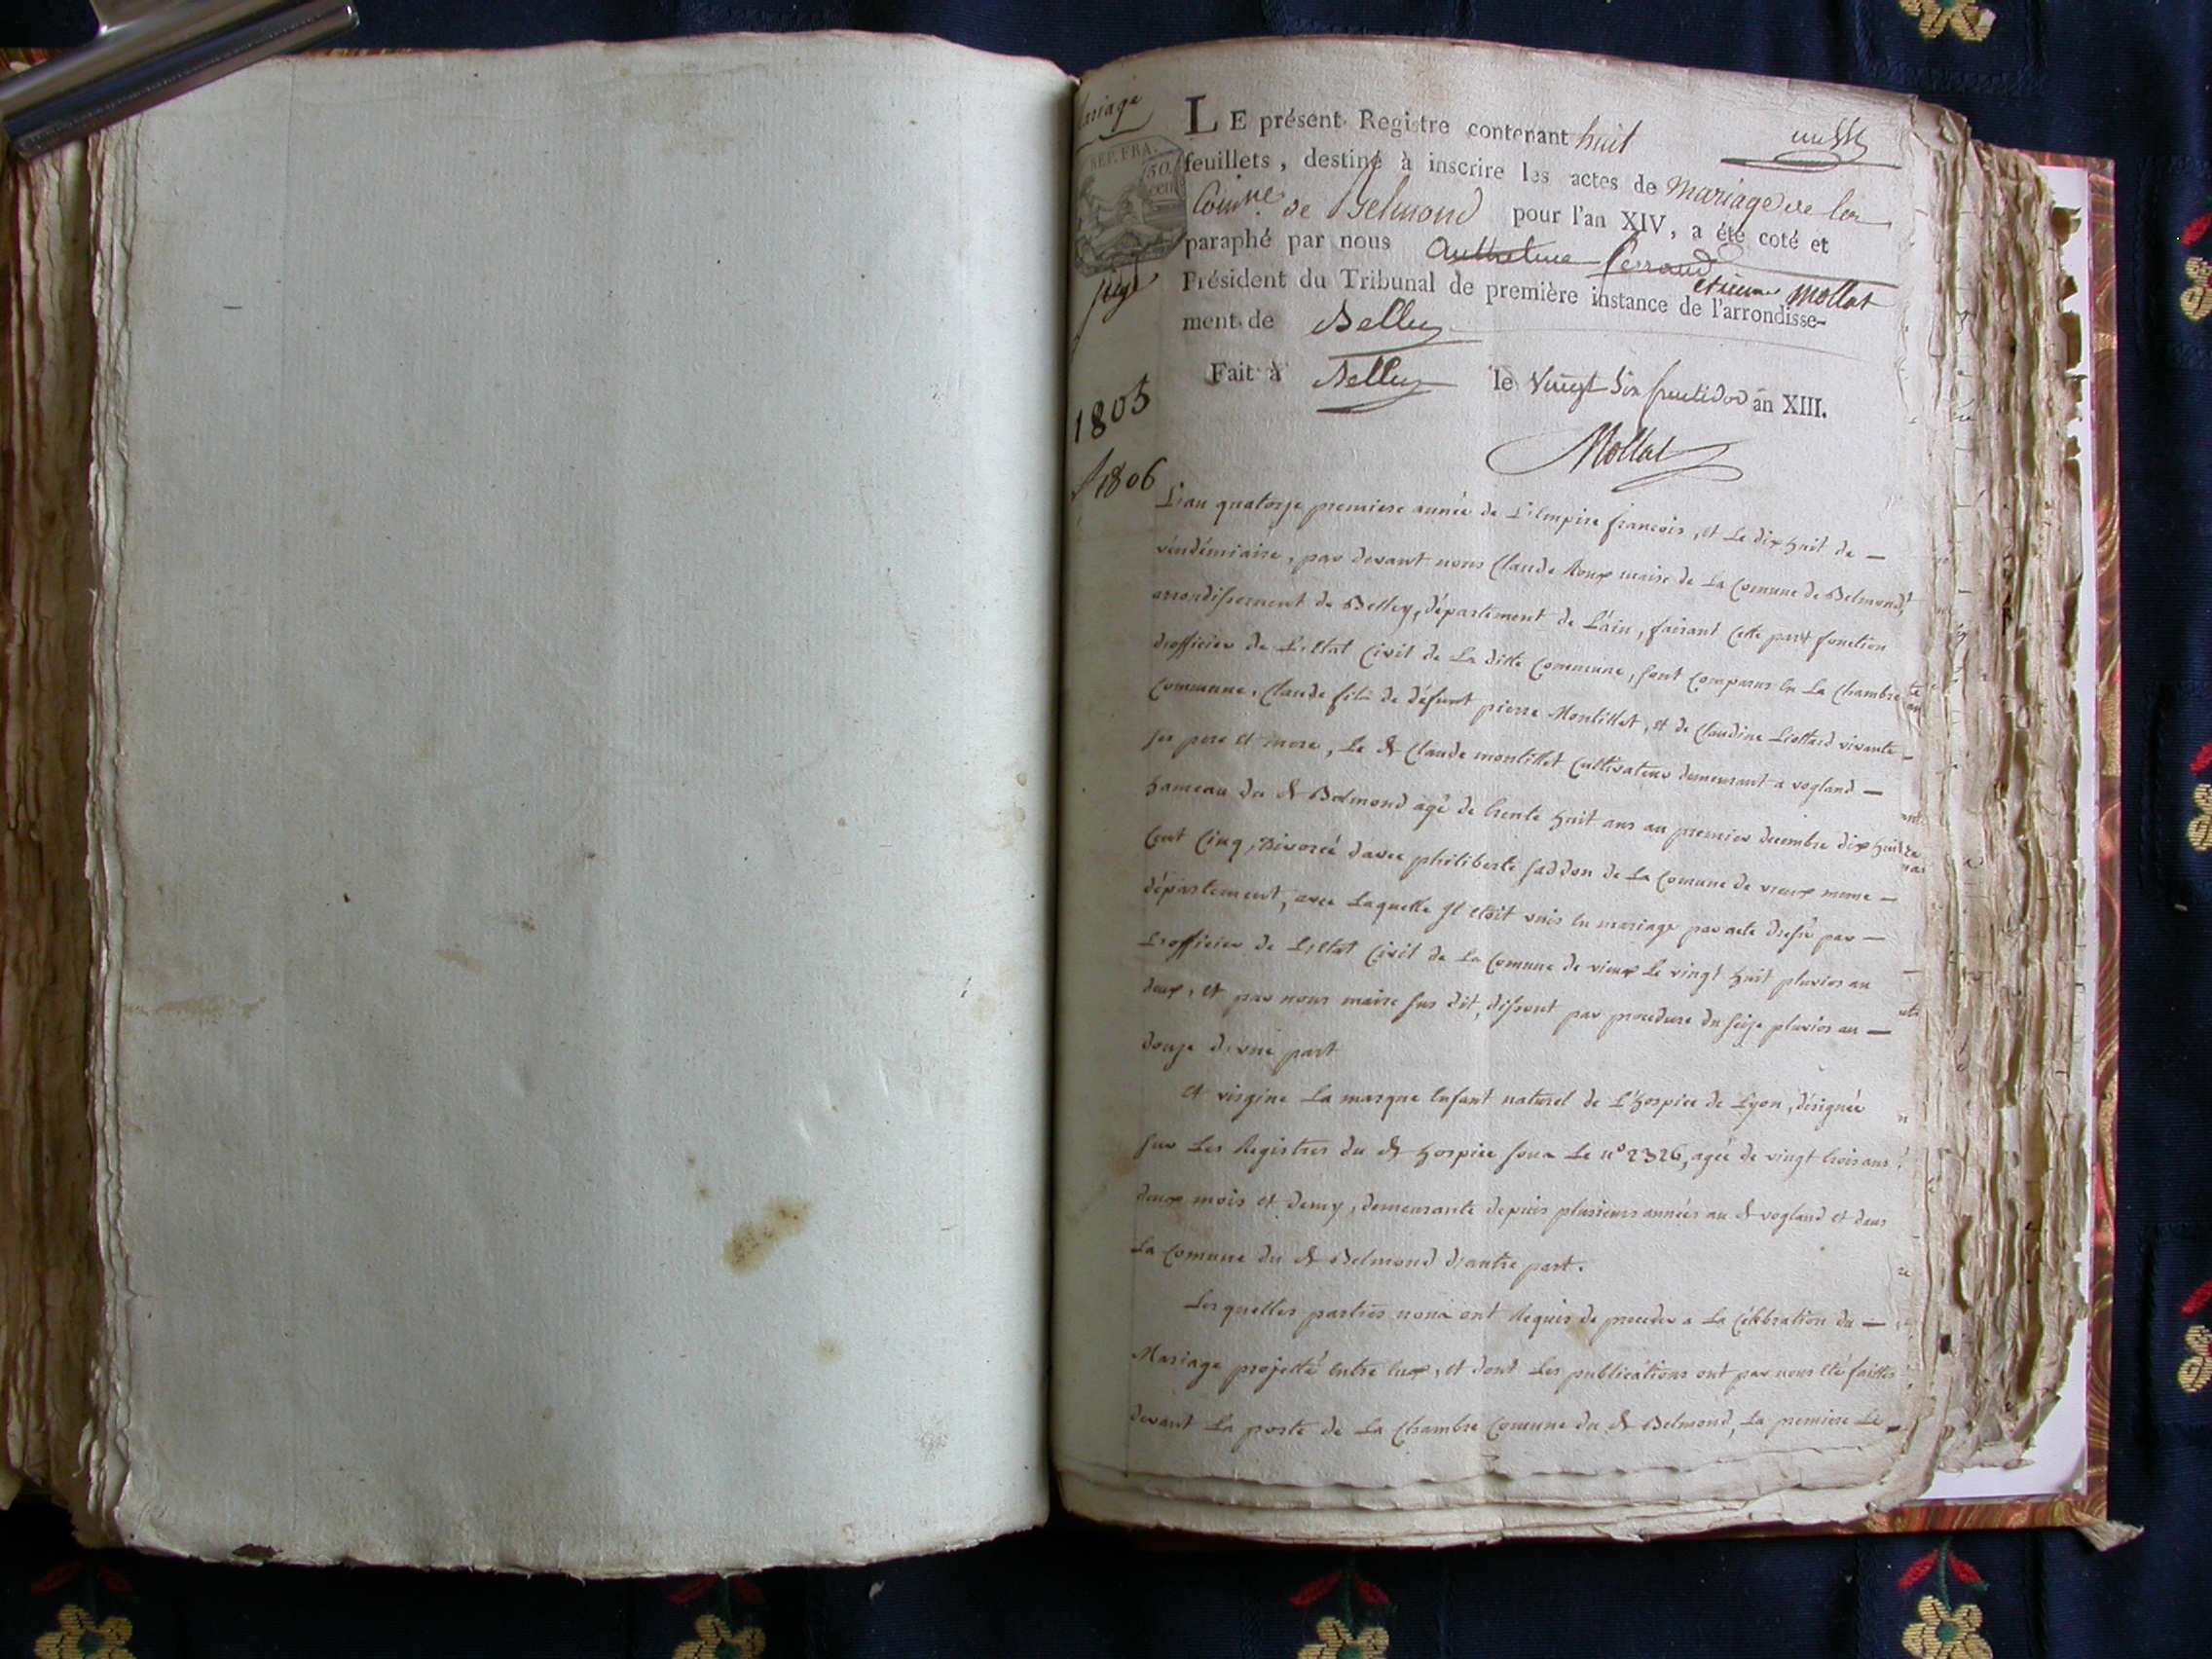 Mariage
REP. FRA.
50
cen
1805
1806
LE présent Registre contenant huit
feuillets, destiné à inscrire les actes de mariage de la
Comne de Belmond pour l'an XIV, a été coté et
paraphé par nous Anthelme Ferrand Etienne Mollat
Président du Tribunal de première instance de l'arrondisse-
ment de Belley
Fait à Belley le vingt six fructidor an XIII.
Mollat
L'an quatorze premiere année de L'Empire francois, et Le dix huit de —
vendémiaire, par devant nous Claude Roux maire de La Comune de Belmond,
arrondissement de Belley, département de L'ain, faisant cette part fonction
d'officier de L'Etat Civil de La ditte Commune, sont comparus en La Chambre
Commune, Claude fils de défunt pierre Montillet, et de Claudine Liottard vivante —
ses pere et mere, Le dt Claude montillet Cultivateur demeurant a vogland —
hameau du dt Belmond agé de trente huit ans au premier decembre dix huit
Cent Cinq, Divorcé d'avec philiberte saddon de La Comune de vieux meme —
département, avec Laquelle Il etoit unis en mariage par acte dressé par —
L'officier de L'Etat Civil de La Comune de vieux Le vingt huit pluvios an
deux, et par nous maire sus dit, dissout par procedure du seize pluvios an —
douze d'une part
Et virgine La masque Enfant naturel de L'Hospice de Lyon, désignée
sur Les Registres du dt hospice sous Le n° 2326, agée de vingt trois ans
deux mois et demy, demeurante depuis plusieurs années au dt vogland et dans
La Comune du dt Belmond d'autre part.
Lesquelles parties nous ont Requis de proceder a La Célébration du —
Mariage projetté entre eux, et dont Les publications ont par nous été faittes
devant La porte de La Chambre Comune du dt Belmond, La premiere Le —